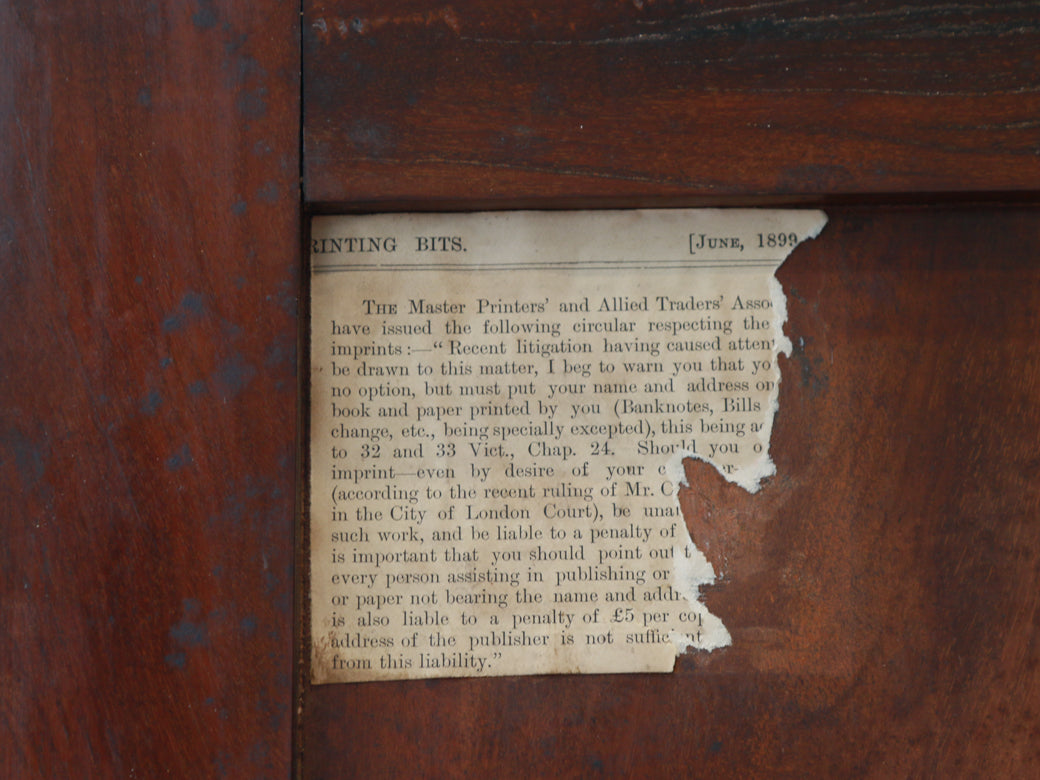 RINTING BITS. [June, 1899
The Master Printers' and Allied Traders' Asso
have issued the following circular respecting the
imprints :—“ Recent litigation having caused atten
be drawn to this matter, I beg to warn you that yo
no option, but must put your name and address on
book and paper printed by you (Banknotes, Bills
change, etc., being specially excepted), this being
to 32 and 33 Vict., Chap. 24. Should you
imprint—even by desire of your
(according to the recent ruling of Mr. C
in the City of London Court), be una
such work, and be liable to a penalty of
is important that you should point out
every person assisting in publishing or
or paper not bearing the name and addr
is also liable to a penalty of £5 per cop
address of the publisher is not suffic nt
from this liability.”